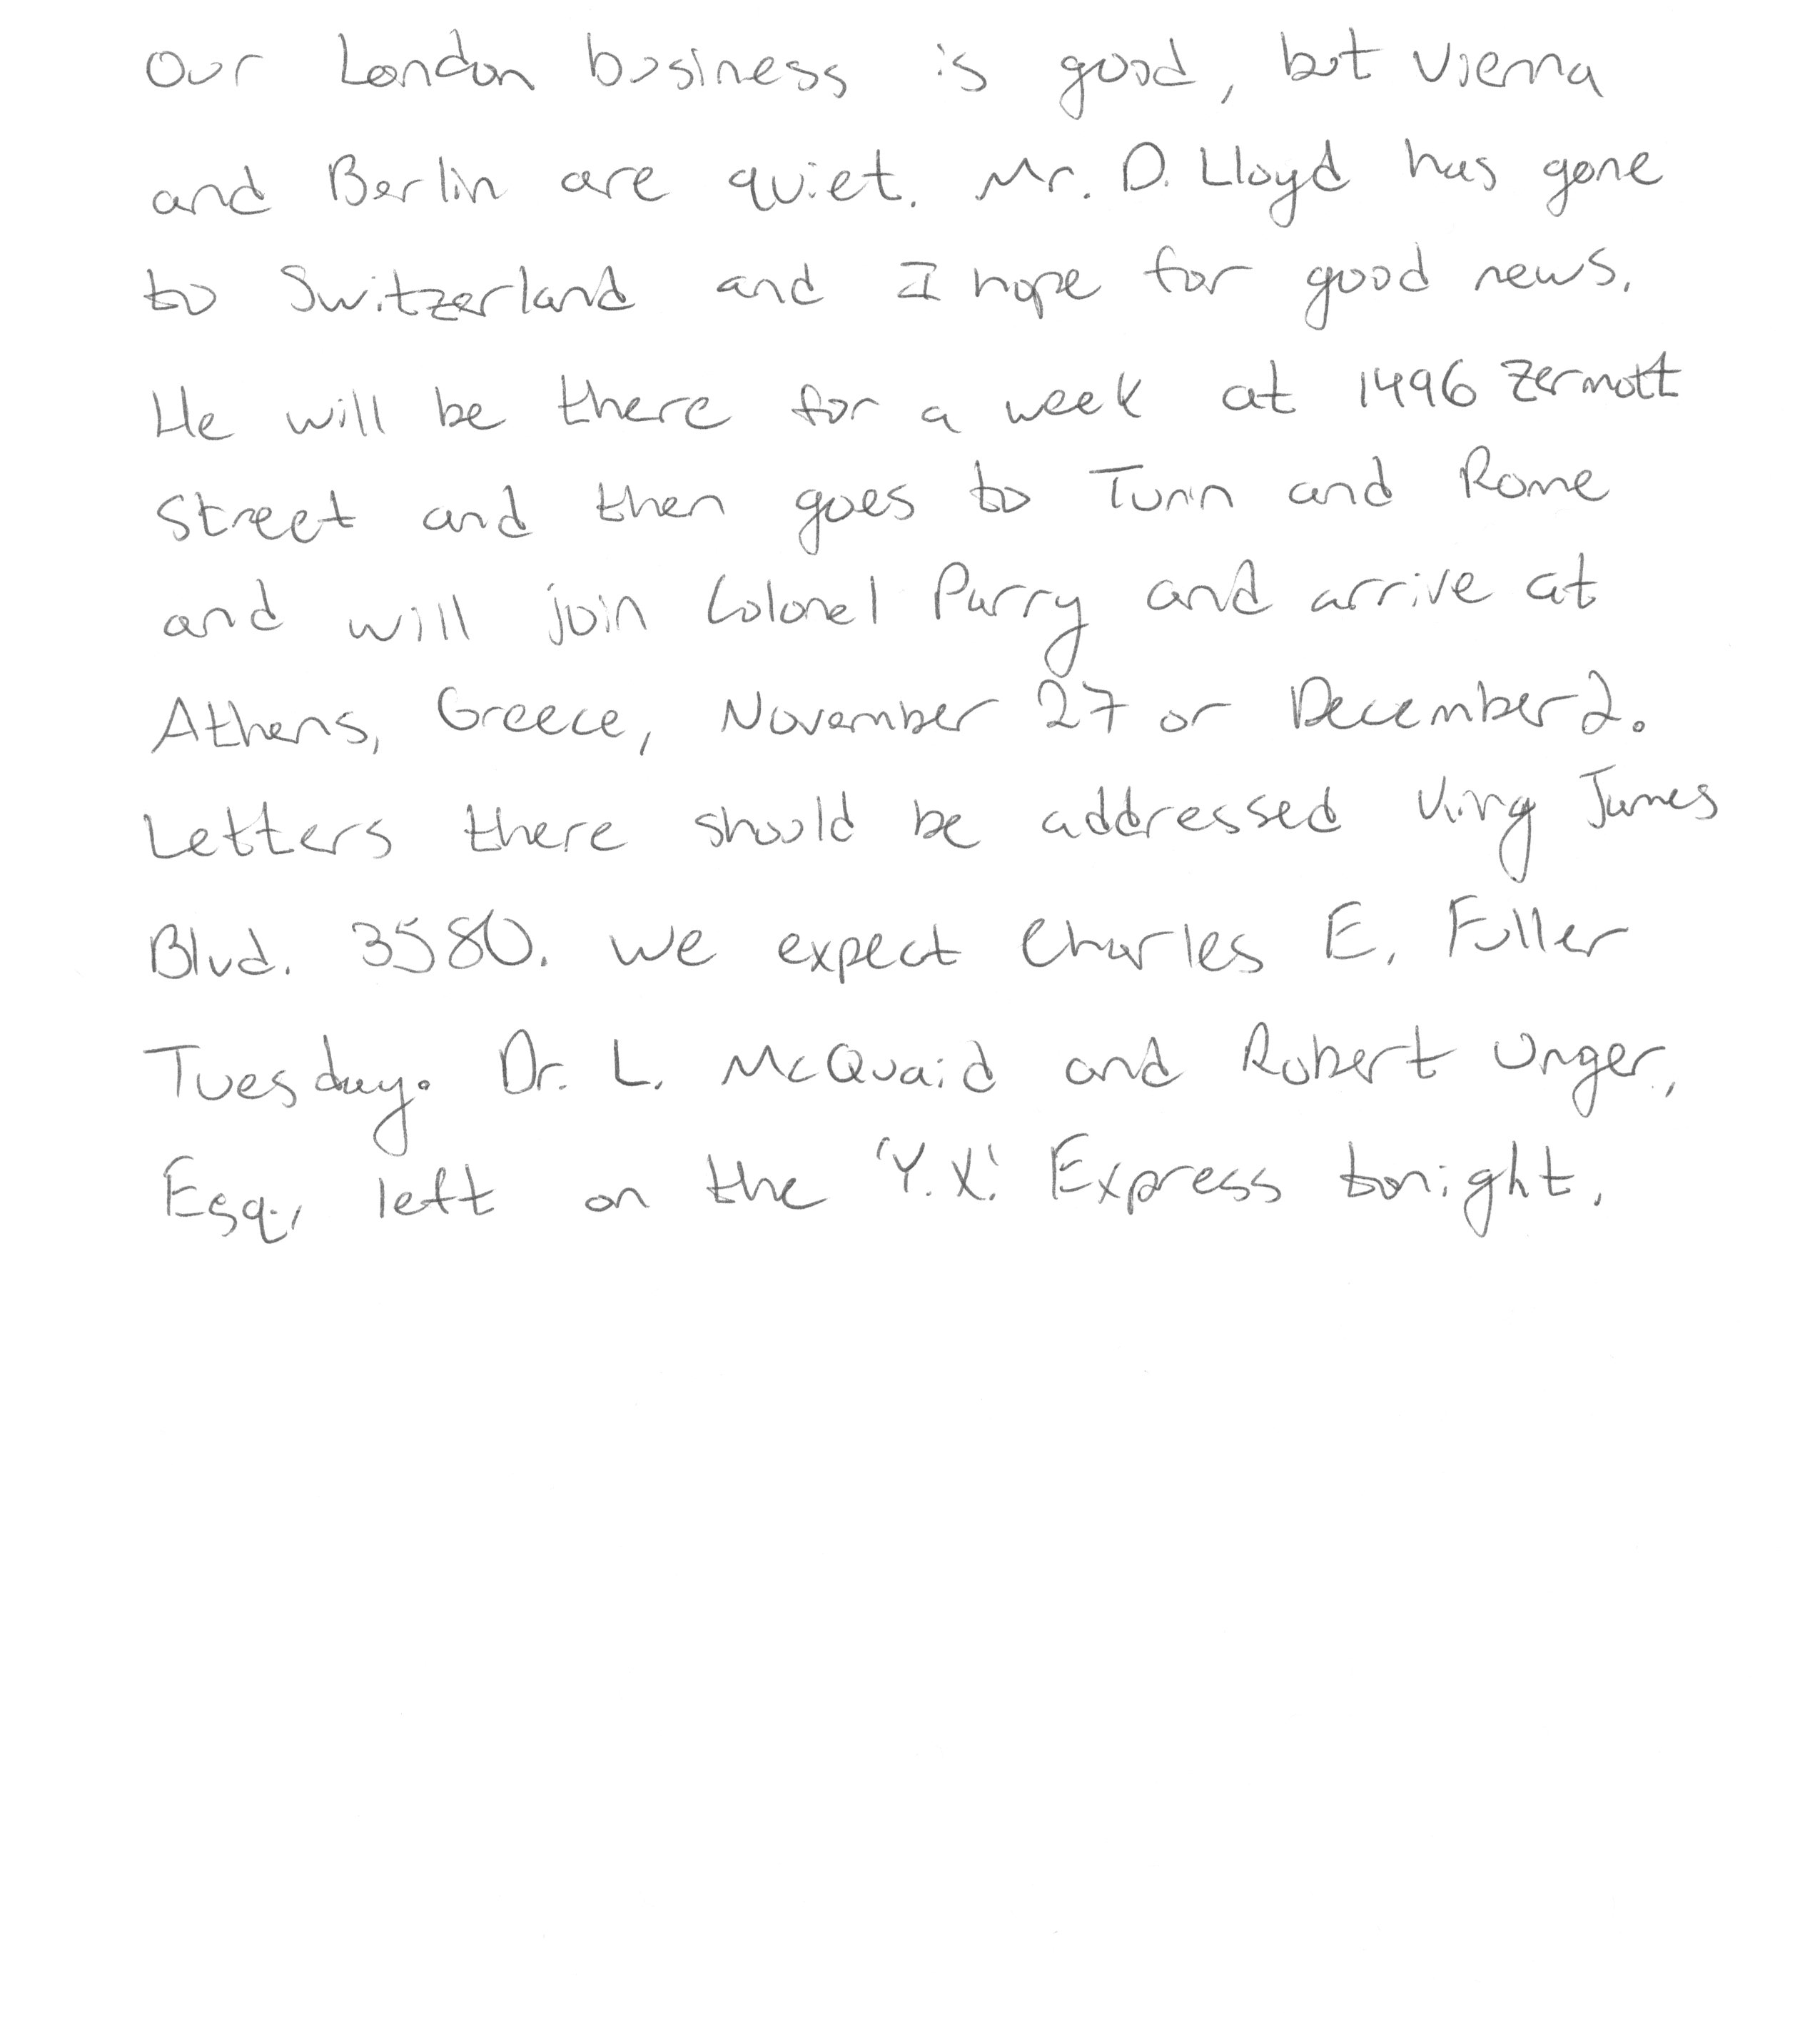 Our London business is good, but Vienna
and Berlin are quiet. Mr. D. Lloyd has gone
to Switzerland and I hope for good news.
He will be there for a week at 1496 Zermott
Street and then goes to Turin and Rome
and will join Colonel Parry and arrive at
Athens, Greece, November 27 or December 2.
Letters there should be addressed King James
Blvd. 3580. We expect Charles E. Fuller
Tuesday. Dr. L. McQuaid and Robert Unger,
Esq., left on the 'Y.X.' Express tonight.